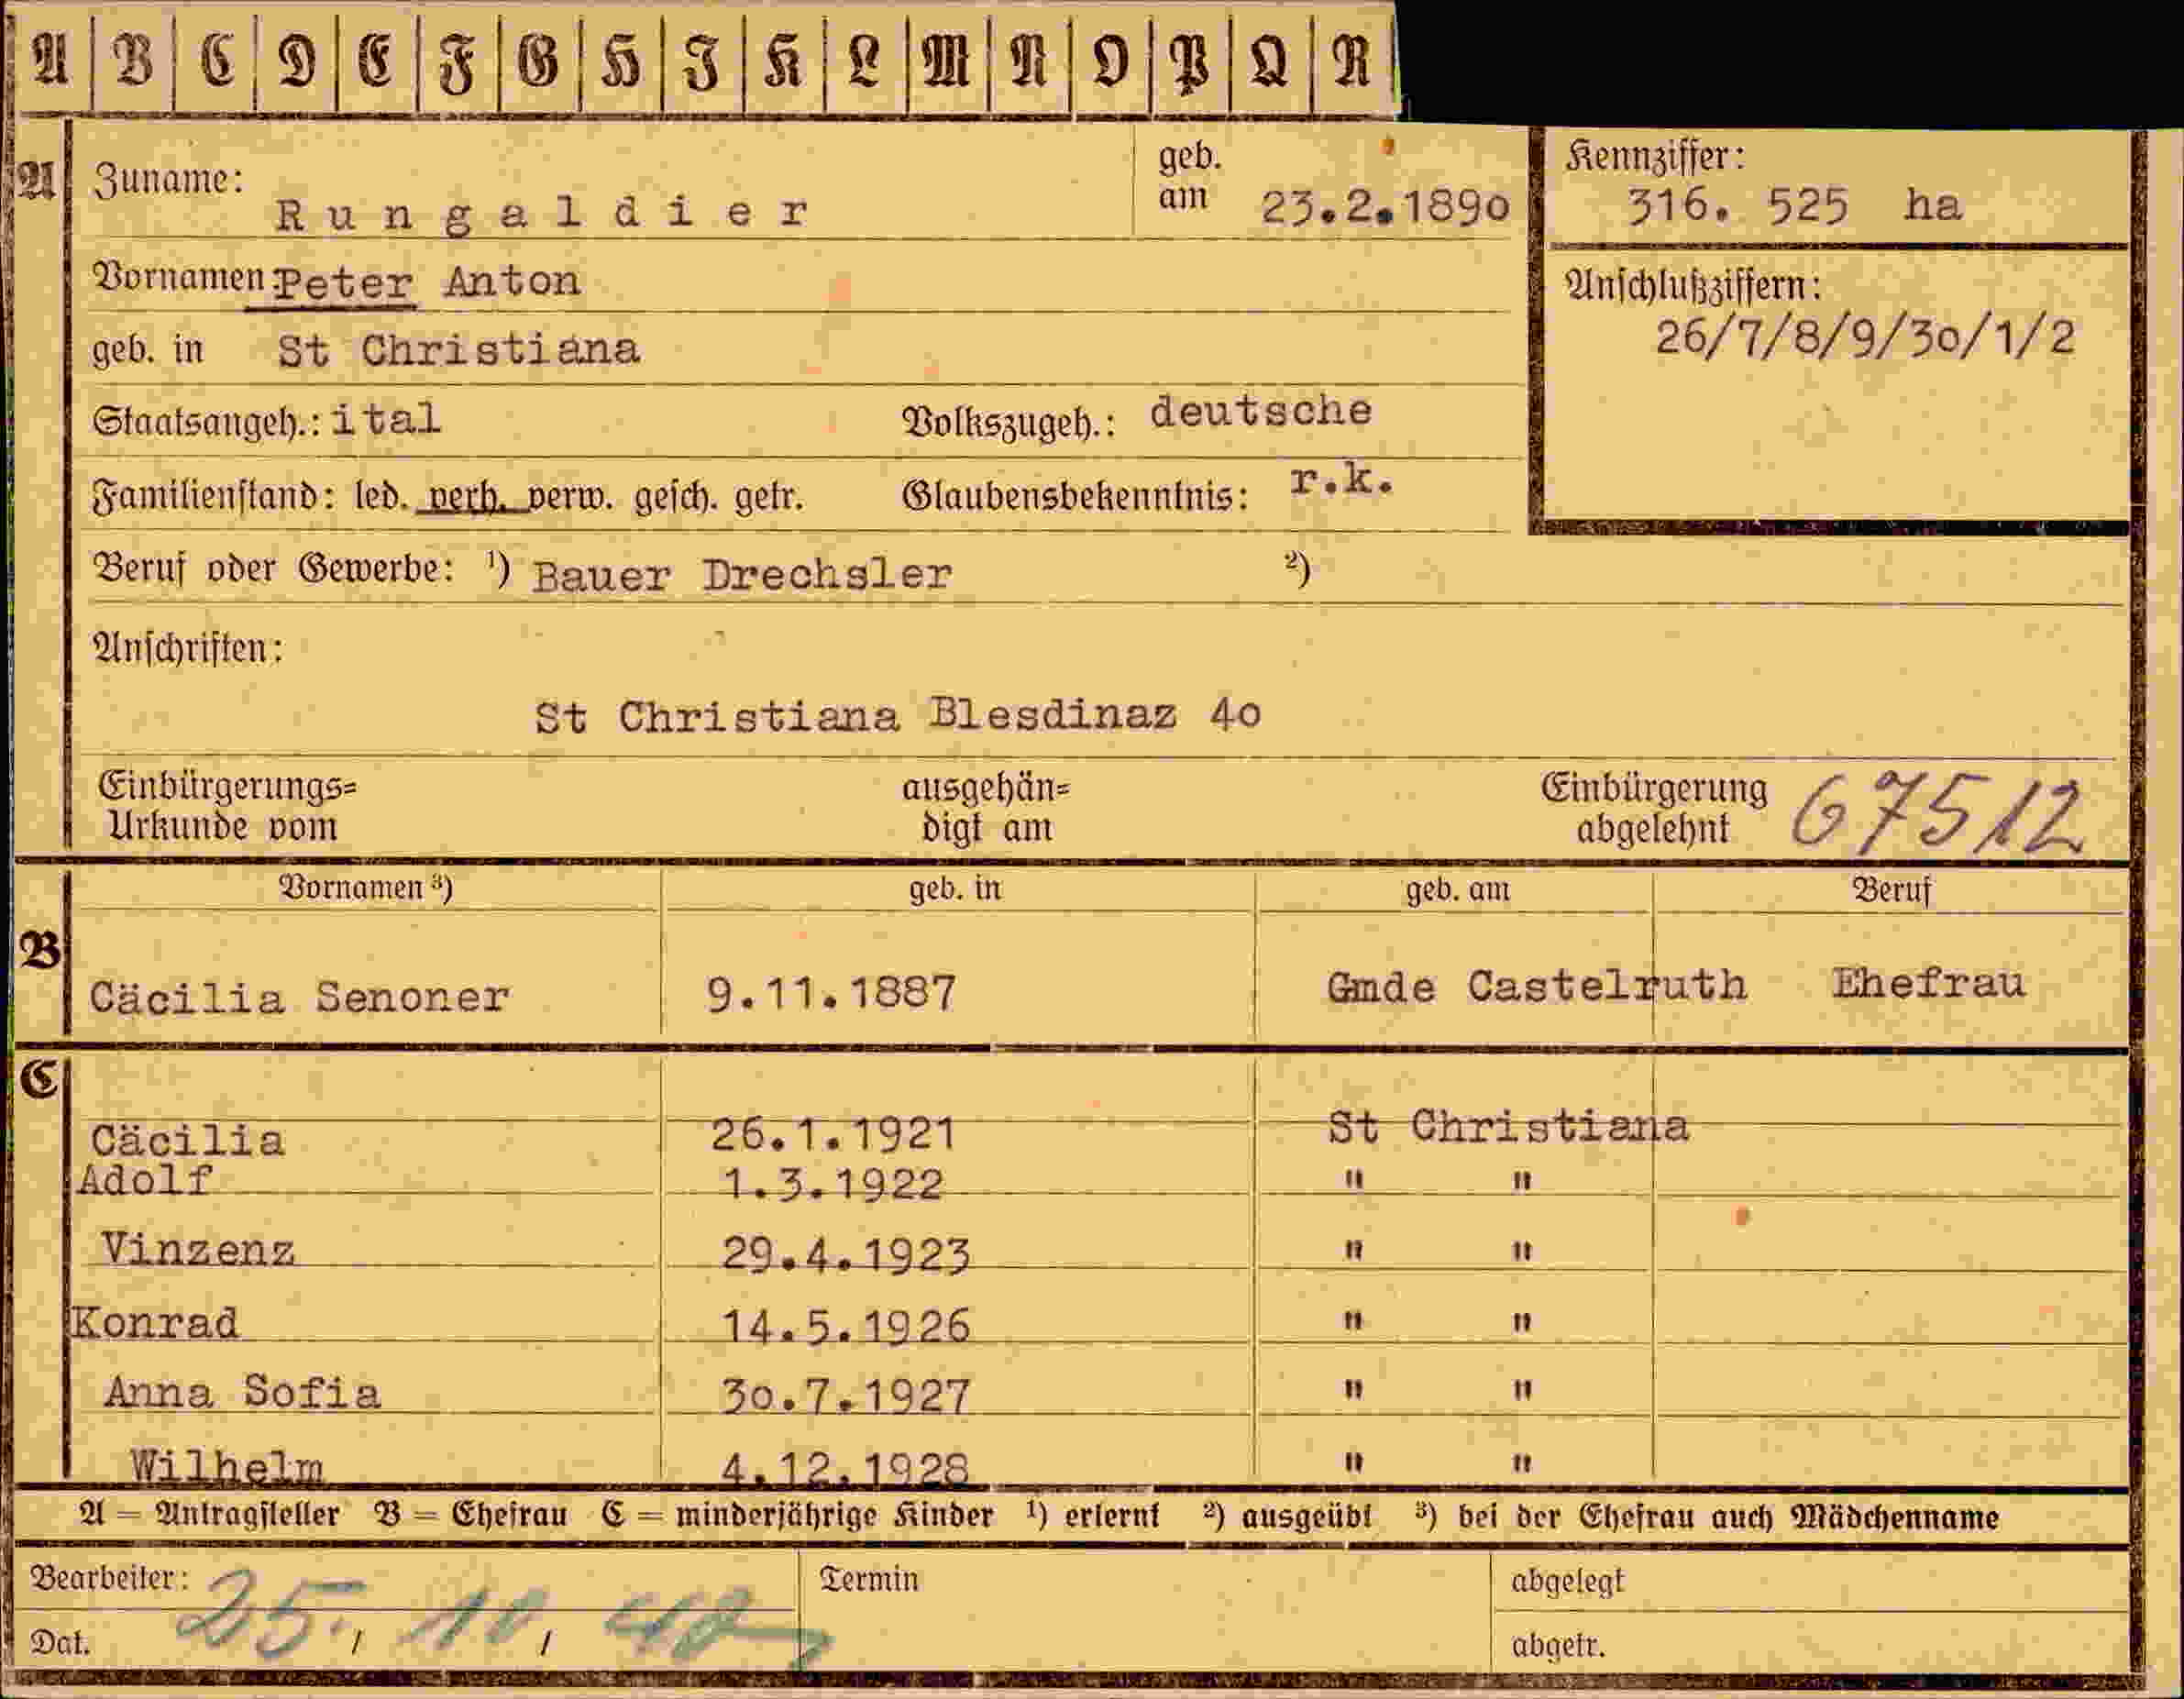 A B C D E F G H I K L M N O P Q R
A Zuname: Rungaldier geb. am 23.2.1890 Kennziffer: 316. 525 ha
Vornamen: Peter Anton Anschlußziffern: 26/7/8/9/30/1/2
geb. in St Christiana
Staatsangeh.: ital Volkszugeh.: deutsche
Familienstand: led. verh. verw. gesch. getr. Glaubensbekenntnis: r.k.
Beruf oder Gewerbe: ¹) Bauer Drechsler ²)
Anschriften:
St Christiana Blesdinaz 40
Einbürgerungs= ausgehän= Einbürgerung 67512
Urkunde vom digt am abgelehnt
Vornamen ³) geb. in geb. am Beruf
B Cäcilia Senoner 9.11.1887 Gmde Castelruth Ehefrau
C
Cäcilia 26.1.1921 St Christiana
Adolf 1.3.1922 " "
Vinzenz 29.4.1923 " "
Konrad 14.5.1926 " "
Anna Sofia 30.7.1927 " "
Wilhelm 4.12.1928 " "
A = Antragsteller B = Ehefrau C = minderjährige Kinder ¹) erlernt ²) ausgeübt ³) bei der Ehefrau auch Mädchenname
Bearbeiter: Termin abgelegt
Dat. 25. / 10 / 40 abgetr.